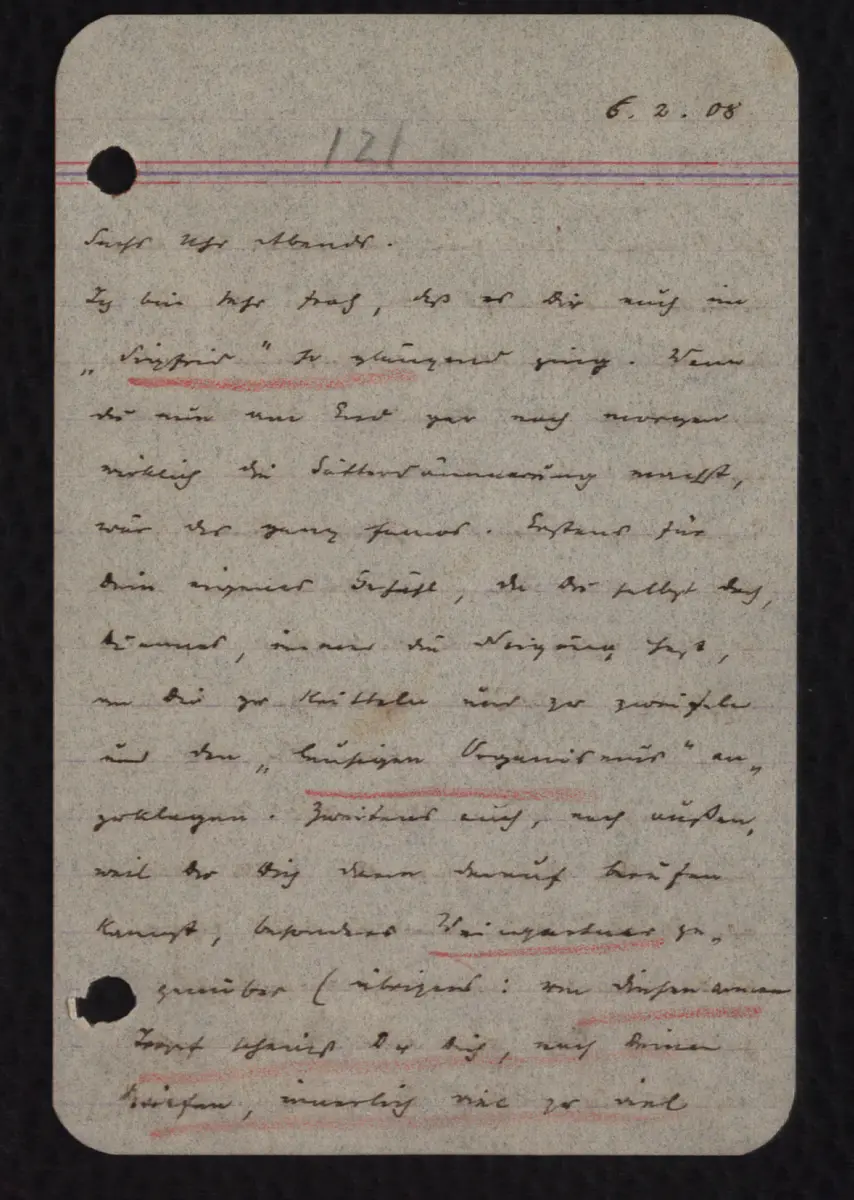 6. 2. 08
121
Sechs Uhr Abends.
Ich bin sehr froh, daß es Dir auch im
„Siegfried“ so glänzend ging. Wenn
du nun am End gar noch morgen
wirklich die Götterdämmerung machst,
wär das ganz famos. Erstens für
dein eigenes Gefühl, da Du selbst doch,
dummes, immer die Neigung hast,
an Dir zu kritteln und zu zweifeln
und den „lausigen Organismus“ an„
zuklagen. Zweitens auch, nach außen,
weil Du Dich dann darauf berufen
kannst, besonders Weingartner ge„
genüber (übrigens: um diesen armen
Tropf scheinst Du Dich, nach Deinen
Briefen, innerlich viel zu viel